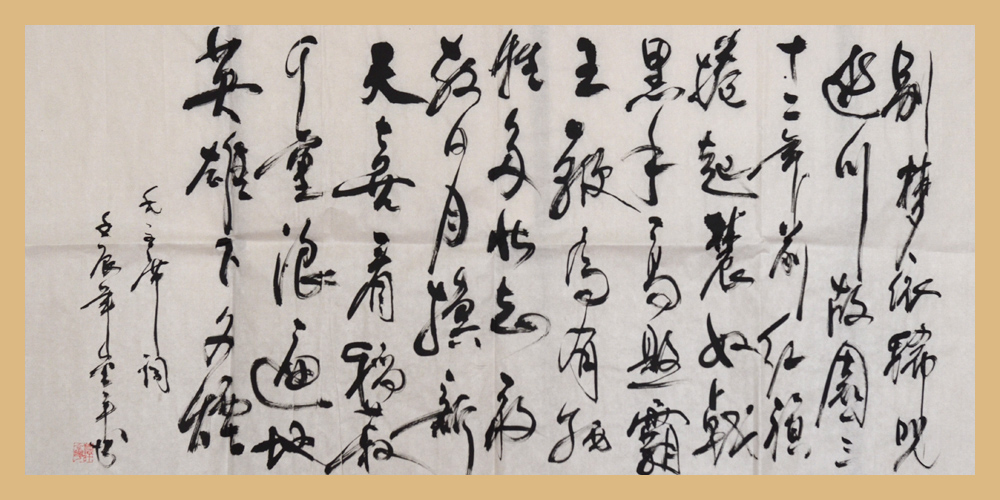 别梦依稀咒
逝川故園三
十二年前红旗
捲起農奴戟
黑手高懸霸
主鞭为有牺
牲多壮志敢
教日月换新
天喜看稻菽
千重浪遍地
英雄下夕煙
毛主席词
壬辰年书